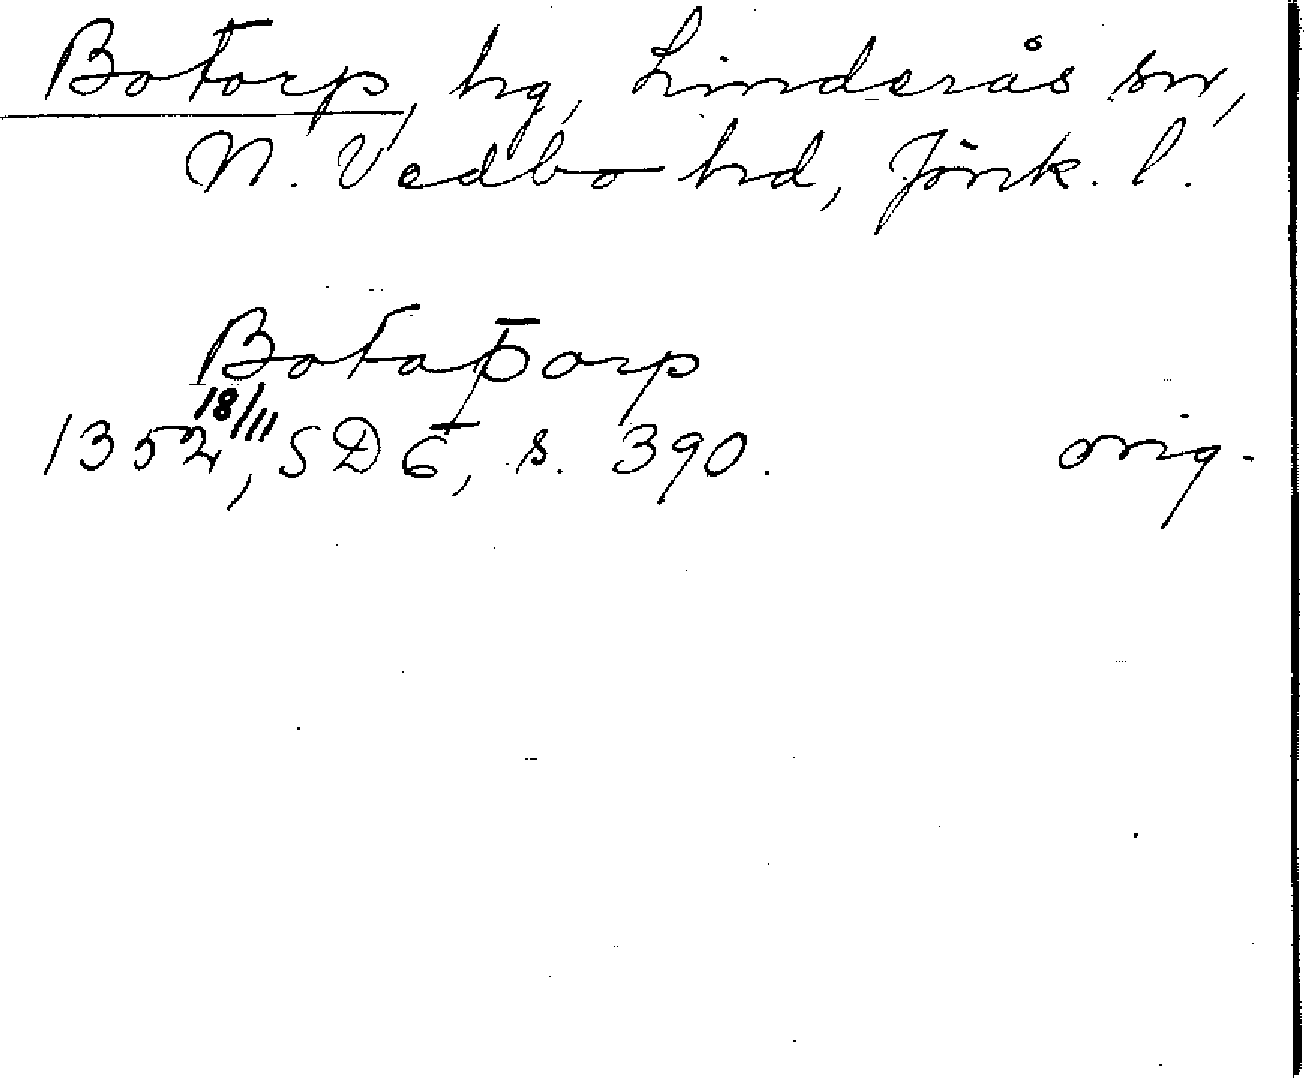 Botorp, hg, Linderås sn,
N. Vedbo hd, Jönk. l.
Botaþorp
1352 18/11, SD 6, s. 390. orig.